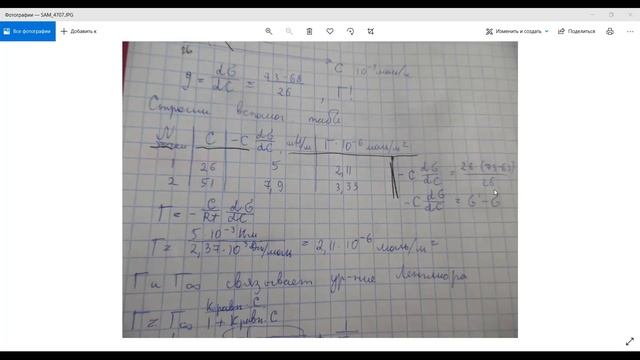 Фотографии — SAM_4707.JPG
Все фотографии
Добавить к
Изменить и создать
Поделиться
26
C 10⁻³ моль/л
g = dσ/dC = (73-68)/26, Г!
Строим вспомог табл
N C -C dσ/dC, мН/м Г·10⁻⁶ моль/м²
1 26 5 2,11
2 51 7,9 3,33
-C dσ/dC = 26·(73-68)/26
-C dσ/dC = σ' - σ
Г = - C/RT dσ/dC
Г = 5·10⁻³ Н/м / 2,37·10³ Дж/моль = 2,11·10⁻⁶ моль/м²
Г и Г∞ связывает ур-ние Ленгмюра
Г = Г∞ Kравн. C / 1 + Kравн. C